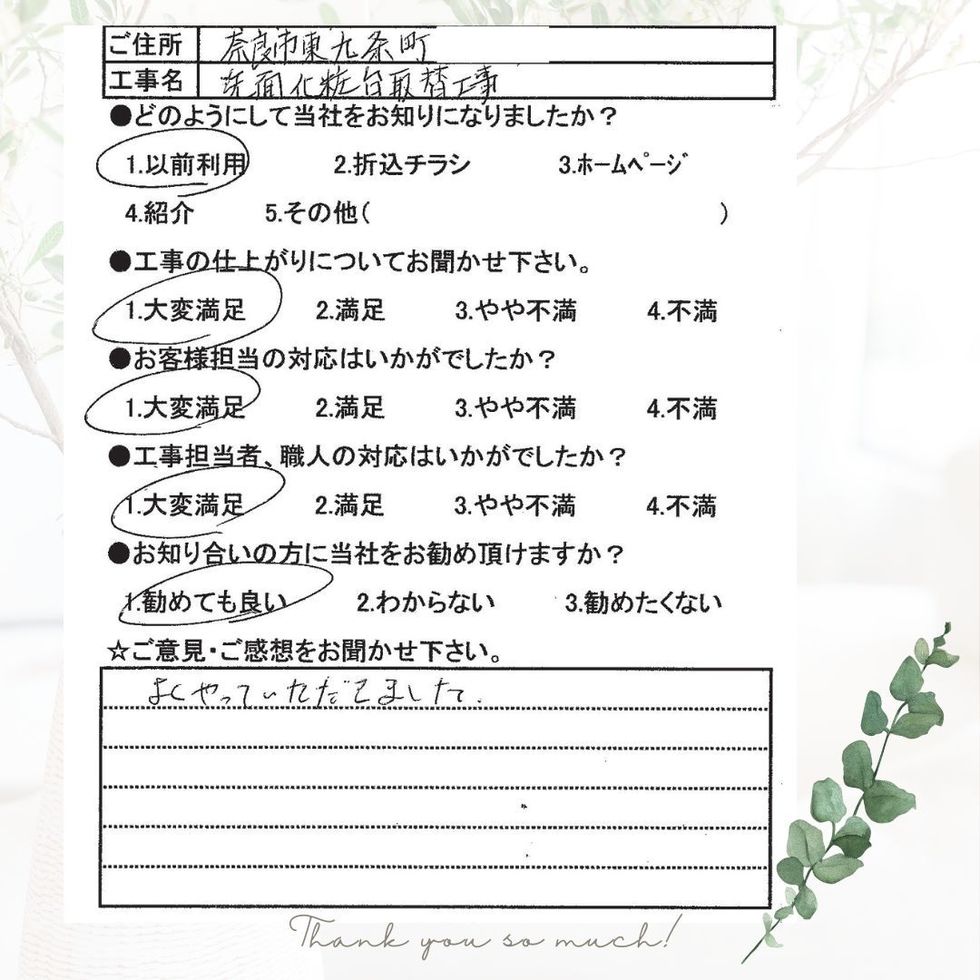 ご住所 奈良市東九条町
工事名 洗面化粧台取替工事
●どのようにして当社をお知りになりましたか？
1.以前利用 2.折込チラシ 3.ﾎｰﾑﾍﾟｰｼﾞ
4.紹介 5.その他( )
●工事の仕上がりについてお聞かせ下さい。
1.大変満足 2.満足 3.やや不満 4.不満
●お客様担当の対応はいかがでしたか？
1.大変満足 2.満足 3.やや不満 4.不満
●工事担当者、職人の対応はいかがでしたか？
1.大変満足 2.満足 3.やや不満 4.不満
●お知り合いの方に当社をお勧め頂けますか？
1.勧めても良い 2.わからない 3.勧めたくない
☆ご意見・ご感想をお聞かせ下さい。
よくやっていただきました.
Thank you so much!